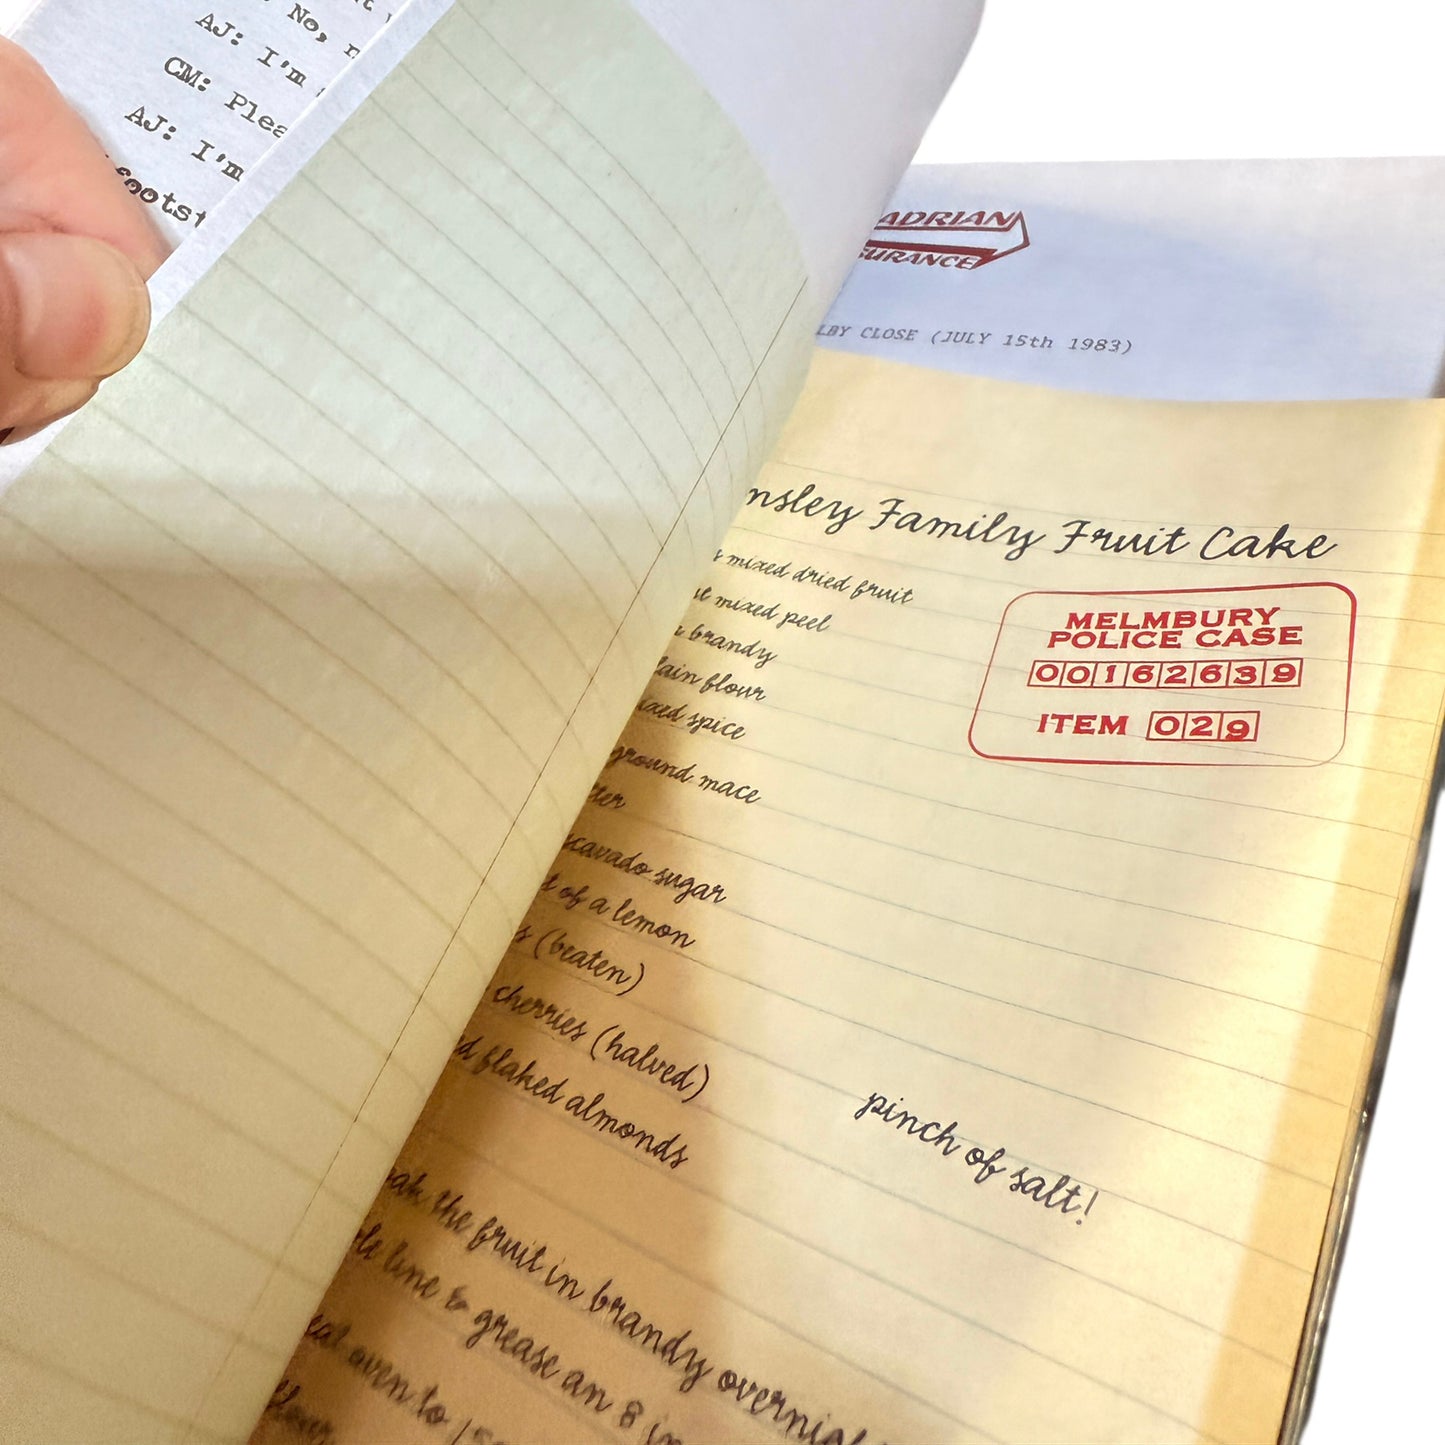 No,
AJ: I'm
CM: Plea
AJ: I'm
foots
ADRIAN
SURANCE
LBY CLOSE (JULY 15th 1983)
nsley Family Fruit Cake
s mixed dried fruit
mixed peel
brandy
lain flour
ixed spice
ground mace
tter
scavado sugar
of a lemon
s (beaten)
cherries (halved)
d flaked almonds
MELMBURY
POLICE CASE
00162639
ITEM 029
pinch of salt!
oak the fruit in brandy overnig
line & grease an 8 in
eat oven to 15
flour